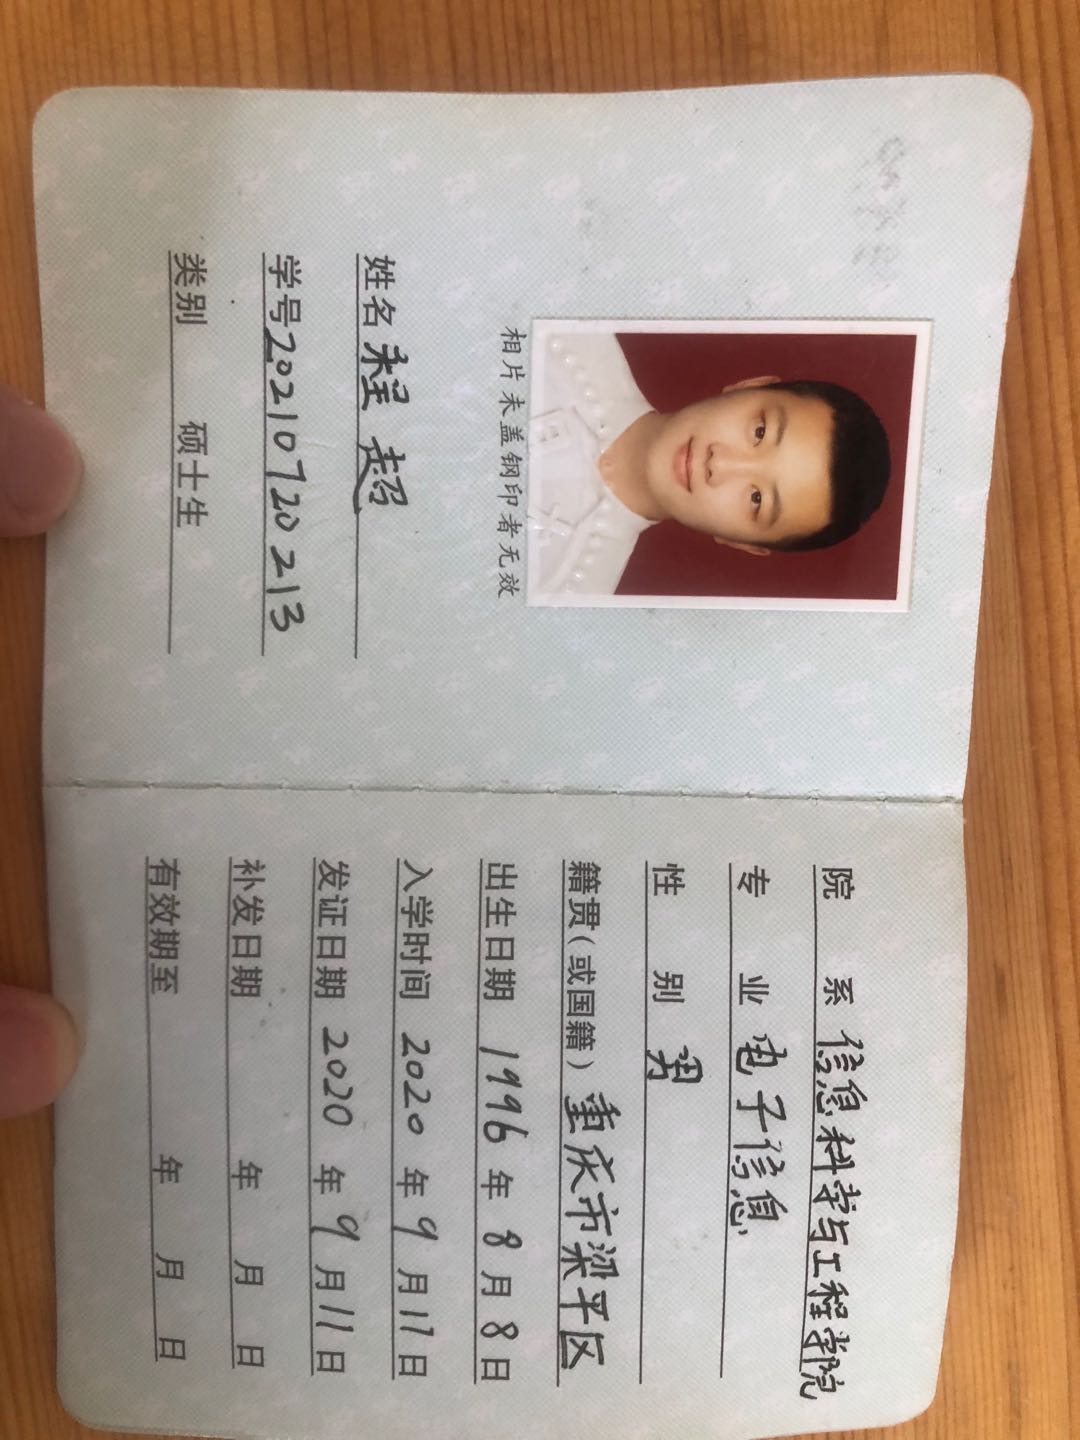 相片未盖钢印者无效
姓名 程超
学号 20210720213
类别 硕士生
院系 信息科学与工程学院
专业 电子信息
性别 男
籍贯(或国籍) 重庆市梁平区
出生日期 1996年8月8日
入学时间 2020年9月17日
发证日期 2020年9月11日
补发日期 年 月 日
有效期至 年 月 日